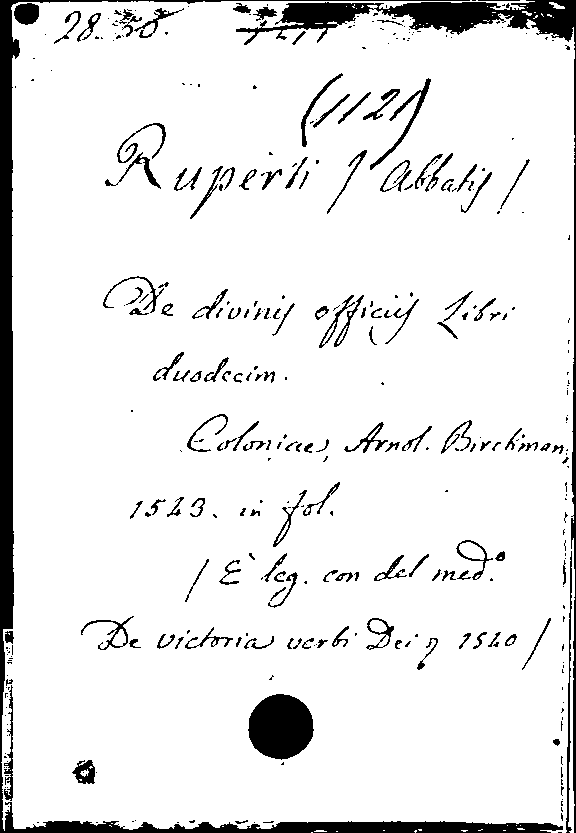 28. 50.
(1121)
Ruperti / Abbatis /
De divinis officiis Libri
duodecim.
Coloniae, Arnol. Birckman,
1543. in fol.
/ È leg. con del med.º
De victoria verbi Dei 1540 /